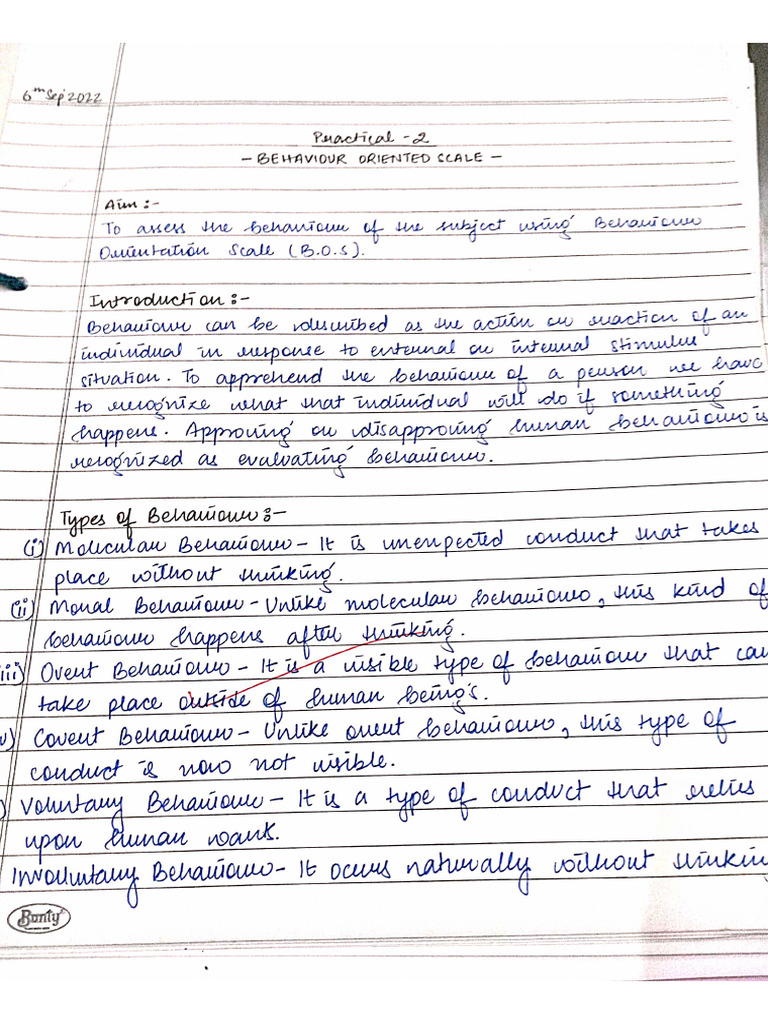 6th Sep' 2022
Practical - 2
- BEHAVIOUR ORIENTED SCALE -
Aim :-
To assess the behaviour of the subject using Behaviour
Orientation Scale (B.O.S).
Introduction :-
Behaviour can be described as the action or reaction of an
individual in response to external or internal stimulus
situation. To apprehend the behaviour of a person we have
to recognize what that individual will do if something
happens. Approving or disapproving human behaviour is
recognized as evaluating behaviour.
Types of Behaviour :-
(i) Molecular Behaviour - It is unexpected conduct that takes
place without thinking.
(ii) Moral Behaviour - Unlike molecular behaviour, this kind of
behaviour happens after thinking.
iii) Overt Behaviour - It is a visible type of behaviour that can
take place outside of human being's.
v) Covert Behaviour - Unlike overt behaviour, this type of
conduct is now not visible.
) Voluntary Behaviour - It is a type of conduct that relies
upon human want.
Involuntary Behaviour - It occurs naturally without thinking
Bunty